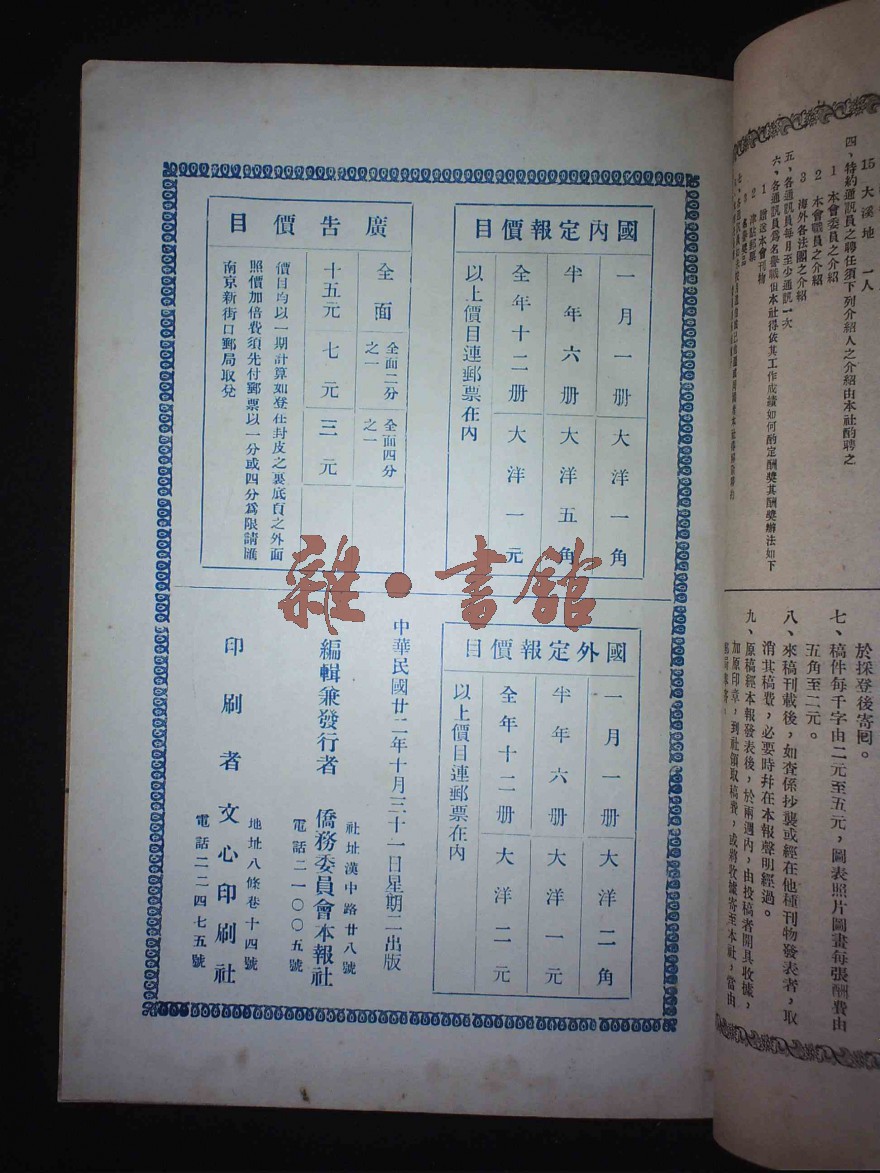 15 大溪地 一人
四、特約通訊員之聘任須下列介紹人之介紹由本社酌聘之
1 本會委員之介紹
2 本會職員之介紹
3 海外各法團之介紹
五、各通訊員每月至少通訊一次
六、各通訊員爲名譽職但本社得依其工作成績如何酌定酬獎其酬獎辦法如下
1 贈送本會刊物
2 津貼郵票
於採登後寄囘。
七、稿件每千字由二元至五元，圖表照片圖畫每張酬費由
五角至二元。
八、來稿刊載後，如查係抄襲或經在他種刊物發表者，取
消其稿費，必要時幷在本報聲明經過。
九、原稿經本報發表後，於兩週內，由投稿者開具收據，
加原印章，到社領取稿費，或將收據寄至本社，當由
國內定報價目
一月一册 大洋一角
半年六册 大洋五角
全年十二册 大洋一元
以上價目連郵票在內
廣告價目
全面 全面二分之一 全面四分之一
十五元 七元 三元
價目均以一期計算如登在封皮之裏底頁之外面
照價加倍費須先付郵票以一分或四分爲限請滙
南京新街口郵局取兌
國外定報價目
一月一册 大洋二角
半年六册 大洋一元
全年十二册 大洋二元
以上價目連郵票在內
中華民國廿二年十月三十一日星期二出版
編輯兼發行者 僑務委員會本報社
社址漢中路廿八號
電話二一〇〇五號
印刷者 文心印刷社
地址八條巷十四號
電話二二四七五號
雜·書館